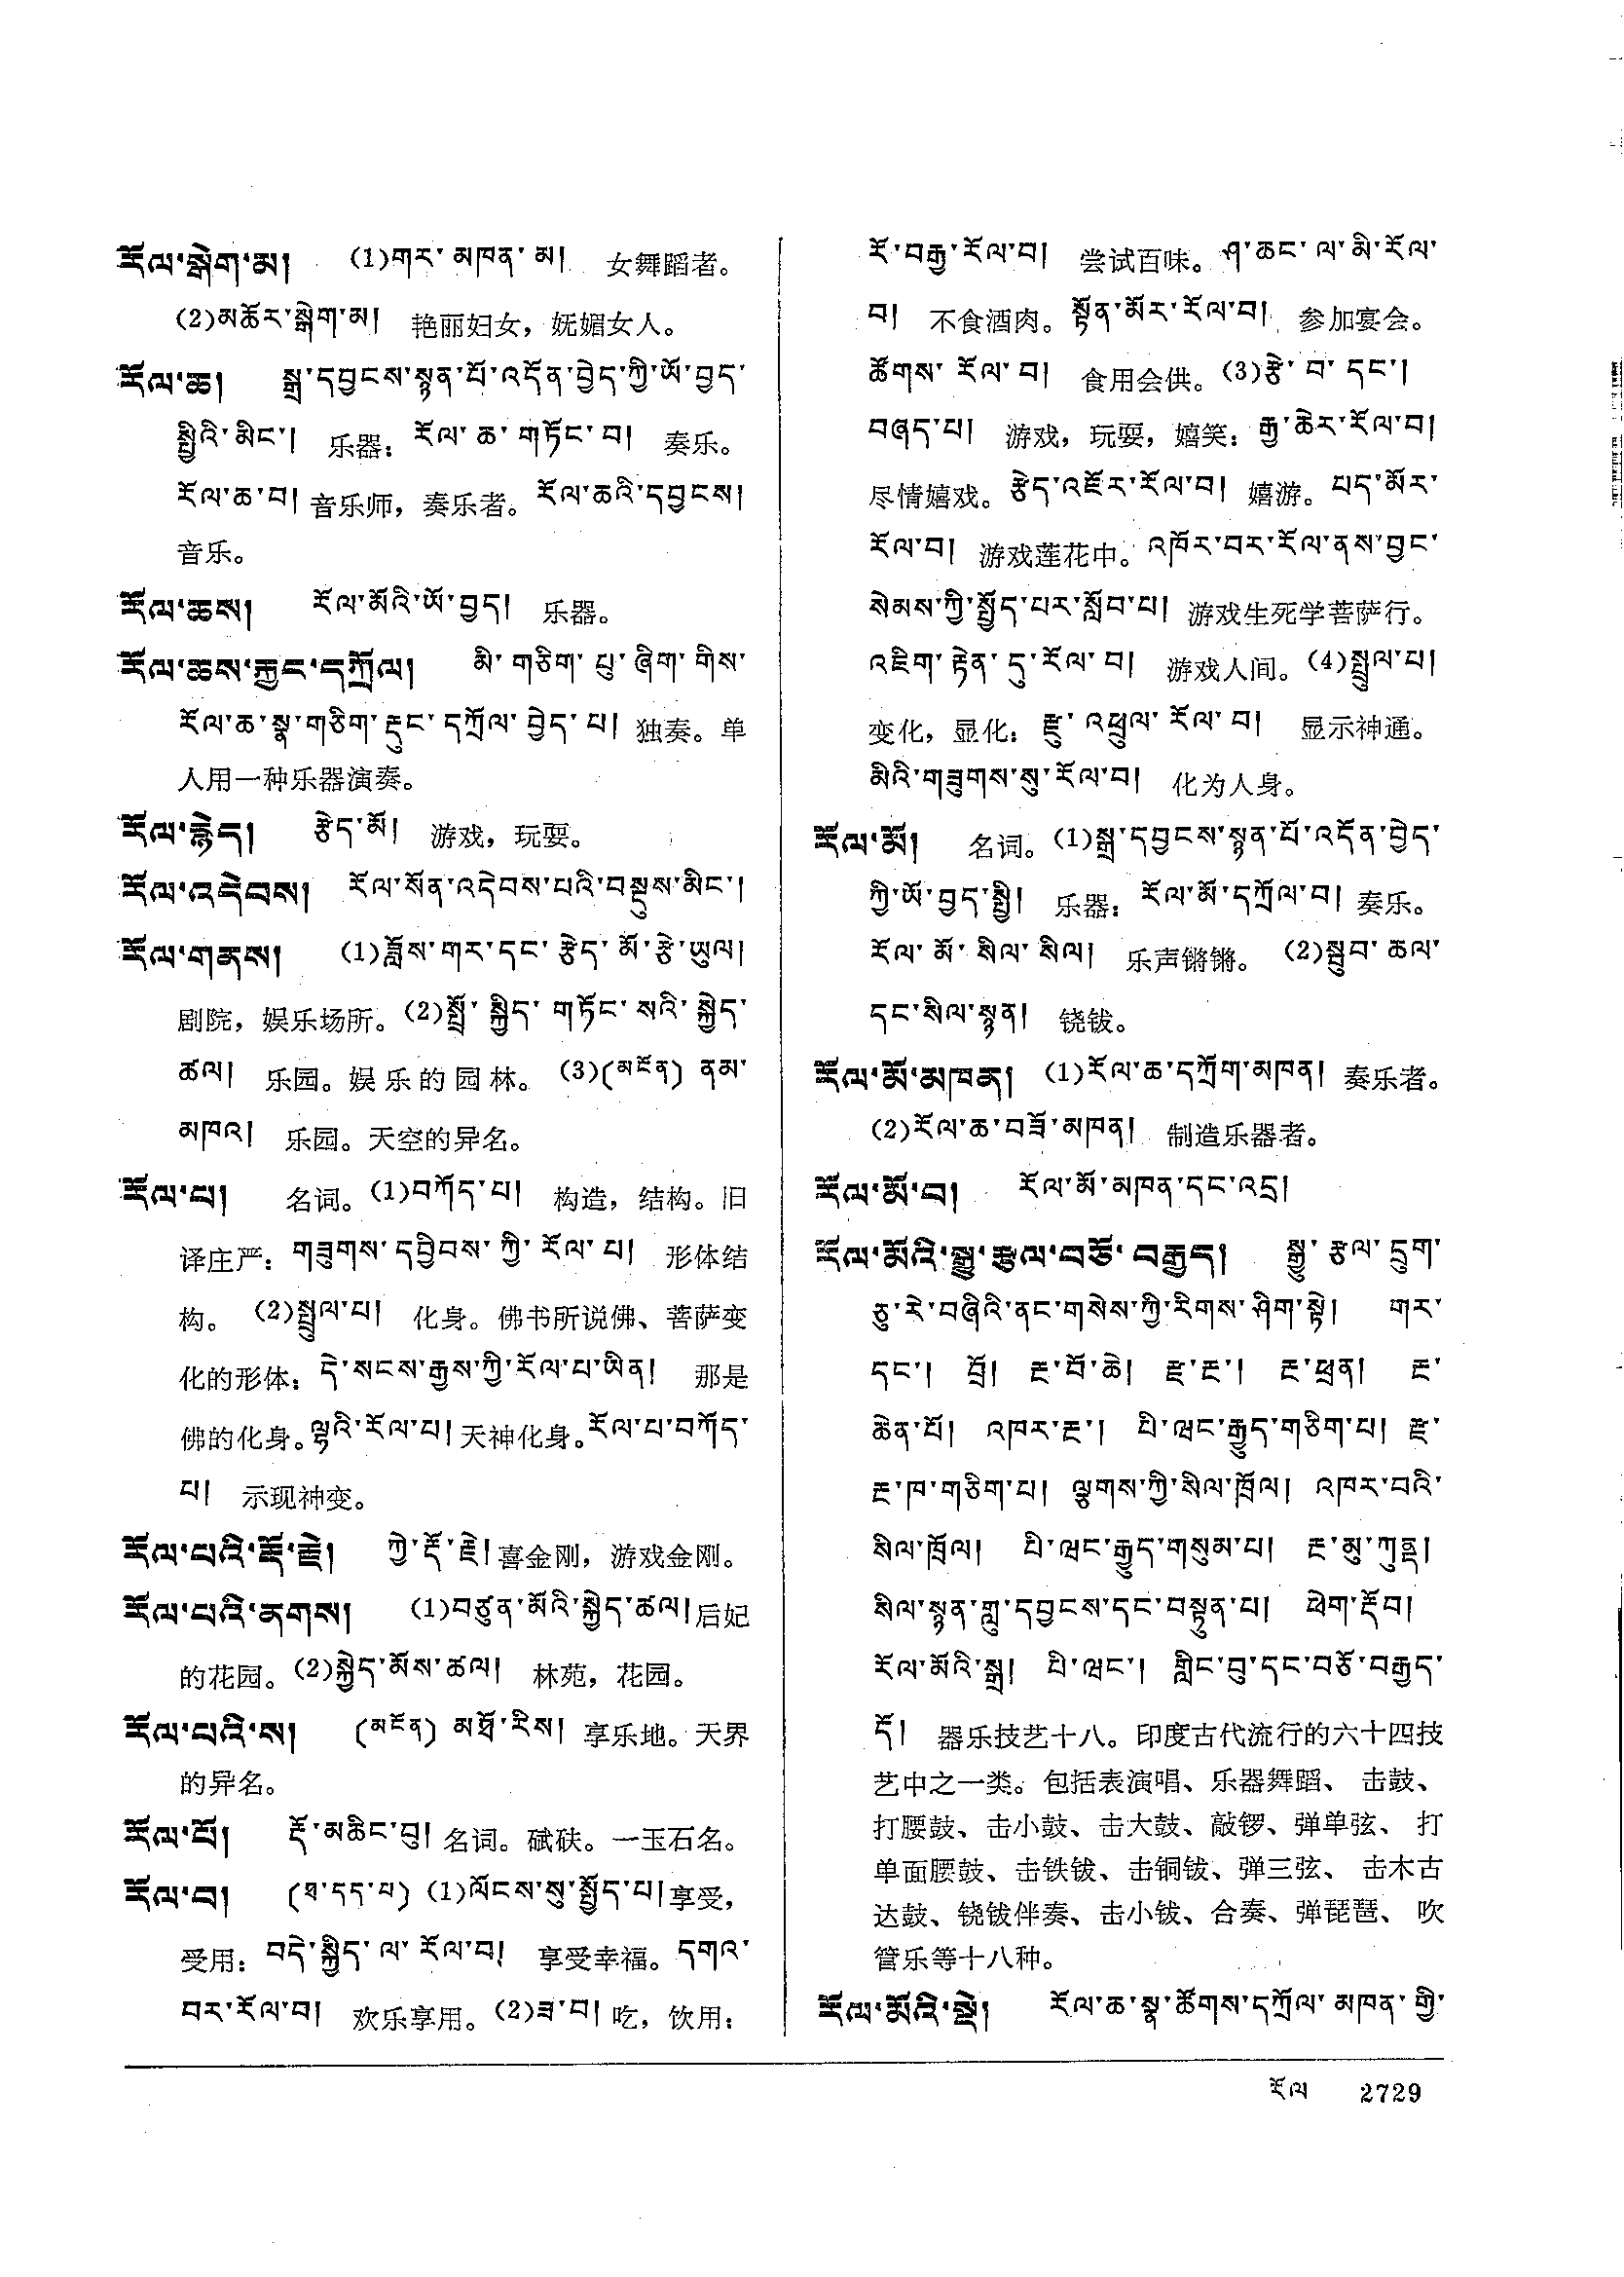 རོལ་སྒེག་མ། (1)གར་མཁན་མ། 女舞蹈者。
(2)མཚོར་སྒེག་མ། 艳丽妇女，妩媚女人。
རོལ་ཆ། སྒྲ་དབྱངས་སྙན་པོ་འདོན་བྱེད་ཀྱི་ཡོ་བྱད་
སྤྱིའི་མིང་། 乐器：རོལ་ཆ་གཏོང་བ། 奏乐。
རོལ་ཆ་བ། 音乐师，奏乐者。རོལ་ཆའི་དབྱངས།
音乐。
རོལ་ཆས། རོལ་མོའི་ཡོ་བྱད། 乐器。
རོལ་ཆས་རྐྱང་དཀྲོལ། མི་གཅིག་པུ་ཞིག་གིས་
རོལ་ཆ་སྣ་གཅིག་རྡུང་དཀྲོལ་བྱེད་པ། 独奏。单
人用一种乐器演奏。
རོལ་རྙེད། རྩེད་མོ། 游戏，玩耍。
རོལ་འདེབས། རོལ་སོན་འདེབས་པའི་བསྡུས་མིང་།
རོལ་གནས། (1)ཟློས་གར་དང་རྩེད་མོ་རྩེ་ཡུལ།
剧院，娱乐场所。(2)སྤྲོ་སྐྱིད་གཏོང་སའི་སྐྱེད་
ཚལ། 乐园。娱乐的园林。(3)(མངོན) ནམ་
མཁའ། 乐园。天空的异名。
རོལ་པ། 名词。(1)བཀོད་པ། 构造，结构。旧
译庄严：གཟུགས་དབྱིབས་ཀྱི་རོལ་པ། 形体结
构。 (2)སྤྲུལ་པ། 化身。佛书所说佛、菩萨变
化的形体：དེ་སངས་རྒྱས་ཀྱི་རོལ་པ་ཡིན། 那是
佛的化身。ལྷའི་རོལ་པ། 天神化身。རོལ་པ་བཀོད་
པ། 示现神变。
རོལ་པའི་རྡོ་རྗེ། ཀྱེ་རྡོ་རྗེ། 喜金刚，游戏金刚。
རོལ་པའི་ནགས། (1)བཙུན་མོའི་སྐྱེད་ཚལ། 后妃
的花园。(2)སྐྱེད་མོས་ཚལ། 林苑，花园。
རོལ་པའི་ས། (མངོན) མཐོ་རིས། 享乐地。天界
的异名。
རོལ་པོ། རྡོ་མཆིང་བུ། 名词。碔砆。一玉石名。
རོལ་བ། (ཐ་དད་པ) (1)ལོངས་སུ་སྤྱོད་པ། 享受，
受用：བདེ་སྐྱིད་ལ་རོལ་བ། 享受幸福。དགའ་
བར་རོལ་བ། 欢乐享用。(2)ཟ་བ། 吃，饮用：
རོ་བརྒྱ་རོལ་བ། 尝试百味。ཤ་ཆང་ལ་མི་རོལ་
བ། 不食酒肉。སྟོན་མོར་རོལ་བ། 参加宴会。
ཚོགས་རོལ་བ། 食用会供。(3)རྩེ་བ་དང་།
བཞད་པ། 游戏，玩耍，嬉笑：རྒྱ་ཆེར་རོལ་བ།
尽情嬉戏。རྩེད་འཇོར་རོལ་བ། 嬉游。པད་མོར་
རོལ་བ། 游戏莲花中。འཁོར་བར་རོལ་ནས་བྱང་
སེམས་ཀྱི་སྤྱོད་པར་སློབ་པ། 游戏生死学菩萨行。
འཇིག་རྟེན་དུ་རོལ་བ། 游戏人间。(4)སྤྲུལ་པ།
变化，显化：རྫུ་འཕྲུལ་རོལ་བ། 显示神通。
མིའི་གཟུགས་སུ་རོལ་བ། 化为人身。
རོལ་མོ། 名词。(1)སྒྲ་དབྱངས་སྙན་པོ་འདོན་བྱེད་
ཀྱི་ཡོ་བྱད་སྤྱི། 乐器：རོལ་མོ་དཀྲོལ་བ། 奏乐。
རོལ་མོ་སིལ་སིལ། 乐声锵锵。 (2)སྦུབ་ཆལ་
དང་སིལ་སྙན། 铙钹。
རོལ་མོ་མཁན། (1)རོལ་ཆ་དཀྲོག་མཁན། 奏乐者。
(2)རོལ་ཆ་བཟོ་མཁན། 制造乐器者。
རོལ་མོ་བ། རོལ་མོ་མཁན་དང་འདྲ།
རོལ་མོའི་སྒྱུ་རྩལ་བཅོ་བརྒྱད། སྒྱུ་རྩལ་དྲུག་
ཅུ་རེ་བཞིའི་ནང་གསེས་ཀྱི་རིགས་ཤིག་སྟེ། གར་
དང་། བྲོ། རྔ་བོ་ཆེ། རྫ་རྔ་། རྔ་ཕྲན། རྔ་
ཆེན་པོ། འཁར་རྔ་། པི་ཝང་རྒྱུད་གཅིག་པ། རྫ་
རྔ་ཁ་གཅིག་པ། ལྕགས་ཀྱི་སིལ་ཁྲོལ། འཁར་བའི་
སིལ་ཁྲོལ། པི་ཝང་རྒྱུད་གསུམ་པ། རྔ་མུ་ཀུནྡ།
སིལ་སྙན་གླུ་དབྱངས་དང་བསྟུན་པ། ཕེག་རྡོབ།
རོལ་མོའི་སྒྲ། པི་ཝང་། གླིང་བུ་དང་བཅོ་བརྒྱད་
དོ། 器乐技艺十八。印度古代流行的六十四技
艺中之一类。包括表演唱、乐器舞蹈、击鼓、
打腰鼓、击小鼓、击大鼓、敲锣、弹单弦、打
单面腰鼓、击铁钹、击铜钹、弹三弦、击木古
达鼓、铙钹伴奏、击小钹、合奏、弹琵琶、吹
管乐等十八种。
རོལ་མོའི་སྡེ། རོལ་ཆ་སྣ་ཚོགས་དཀྲོལ་མཁན་གྱི་
རོལ 2729